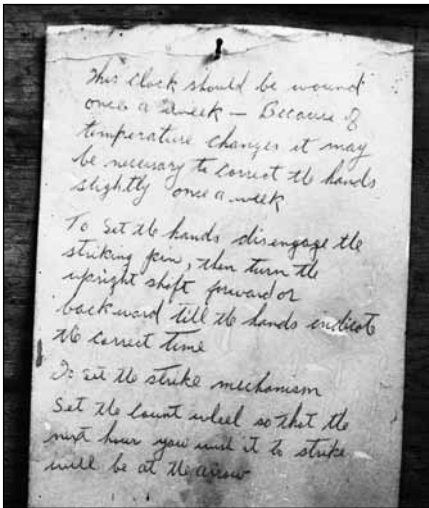 This clock should be wound
once a week — Because of
temperature changes it may
be necessary to correct the hands
slightly once a week
To Set the hands disengage the
striking pin, then turn the
upright shaft forward or
backward till the hands indicate
the correct time
To set the strike mechanism
Set the count wheel so that the
next hour you wish it to strike
will be at the arrow